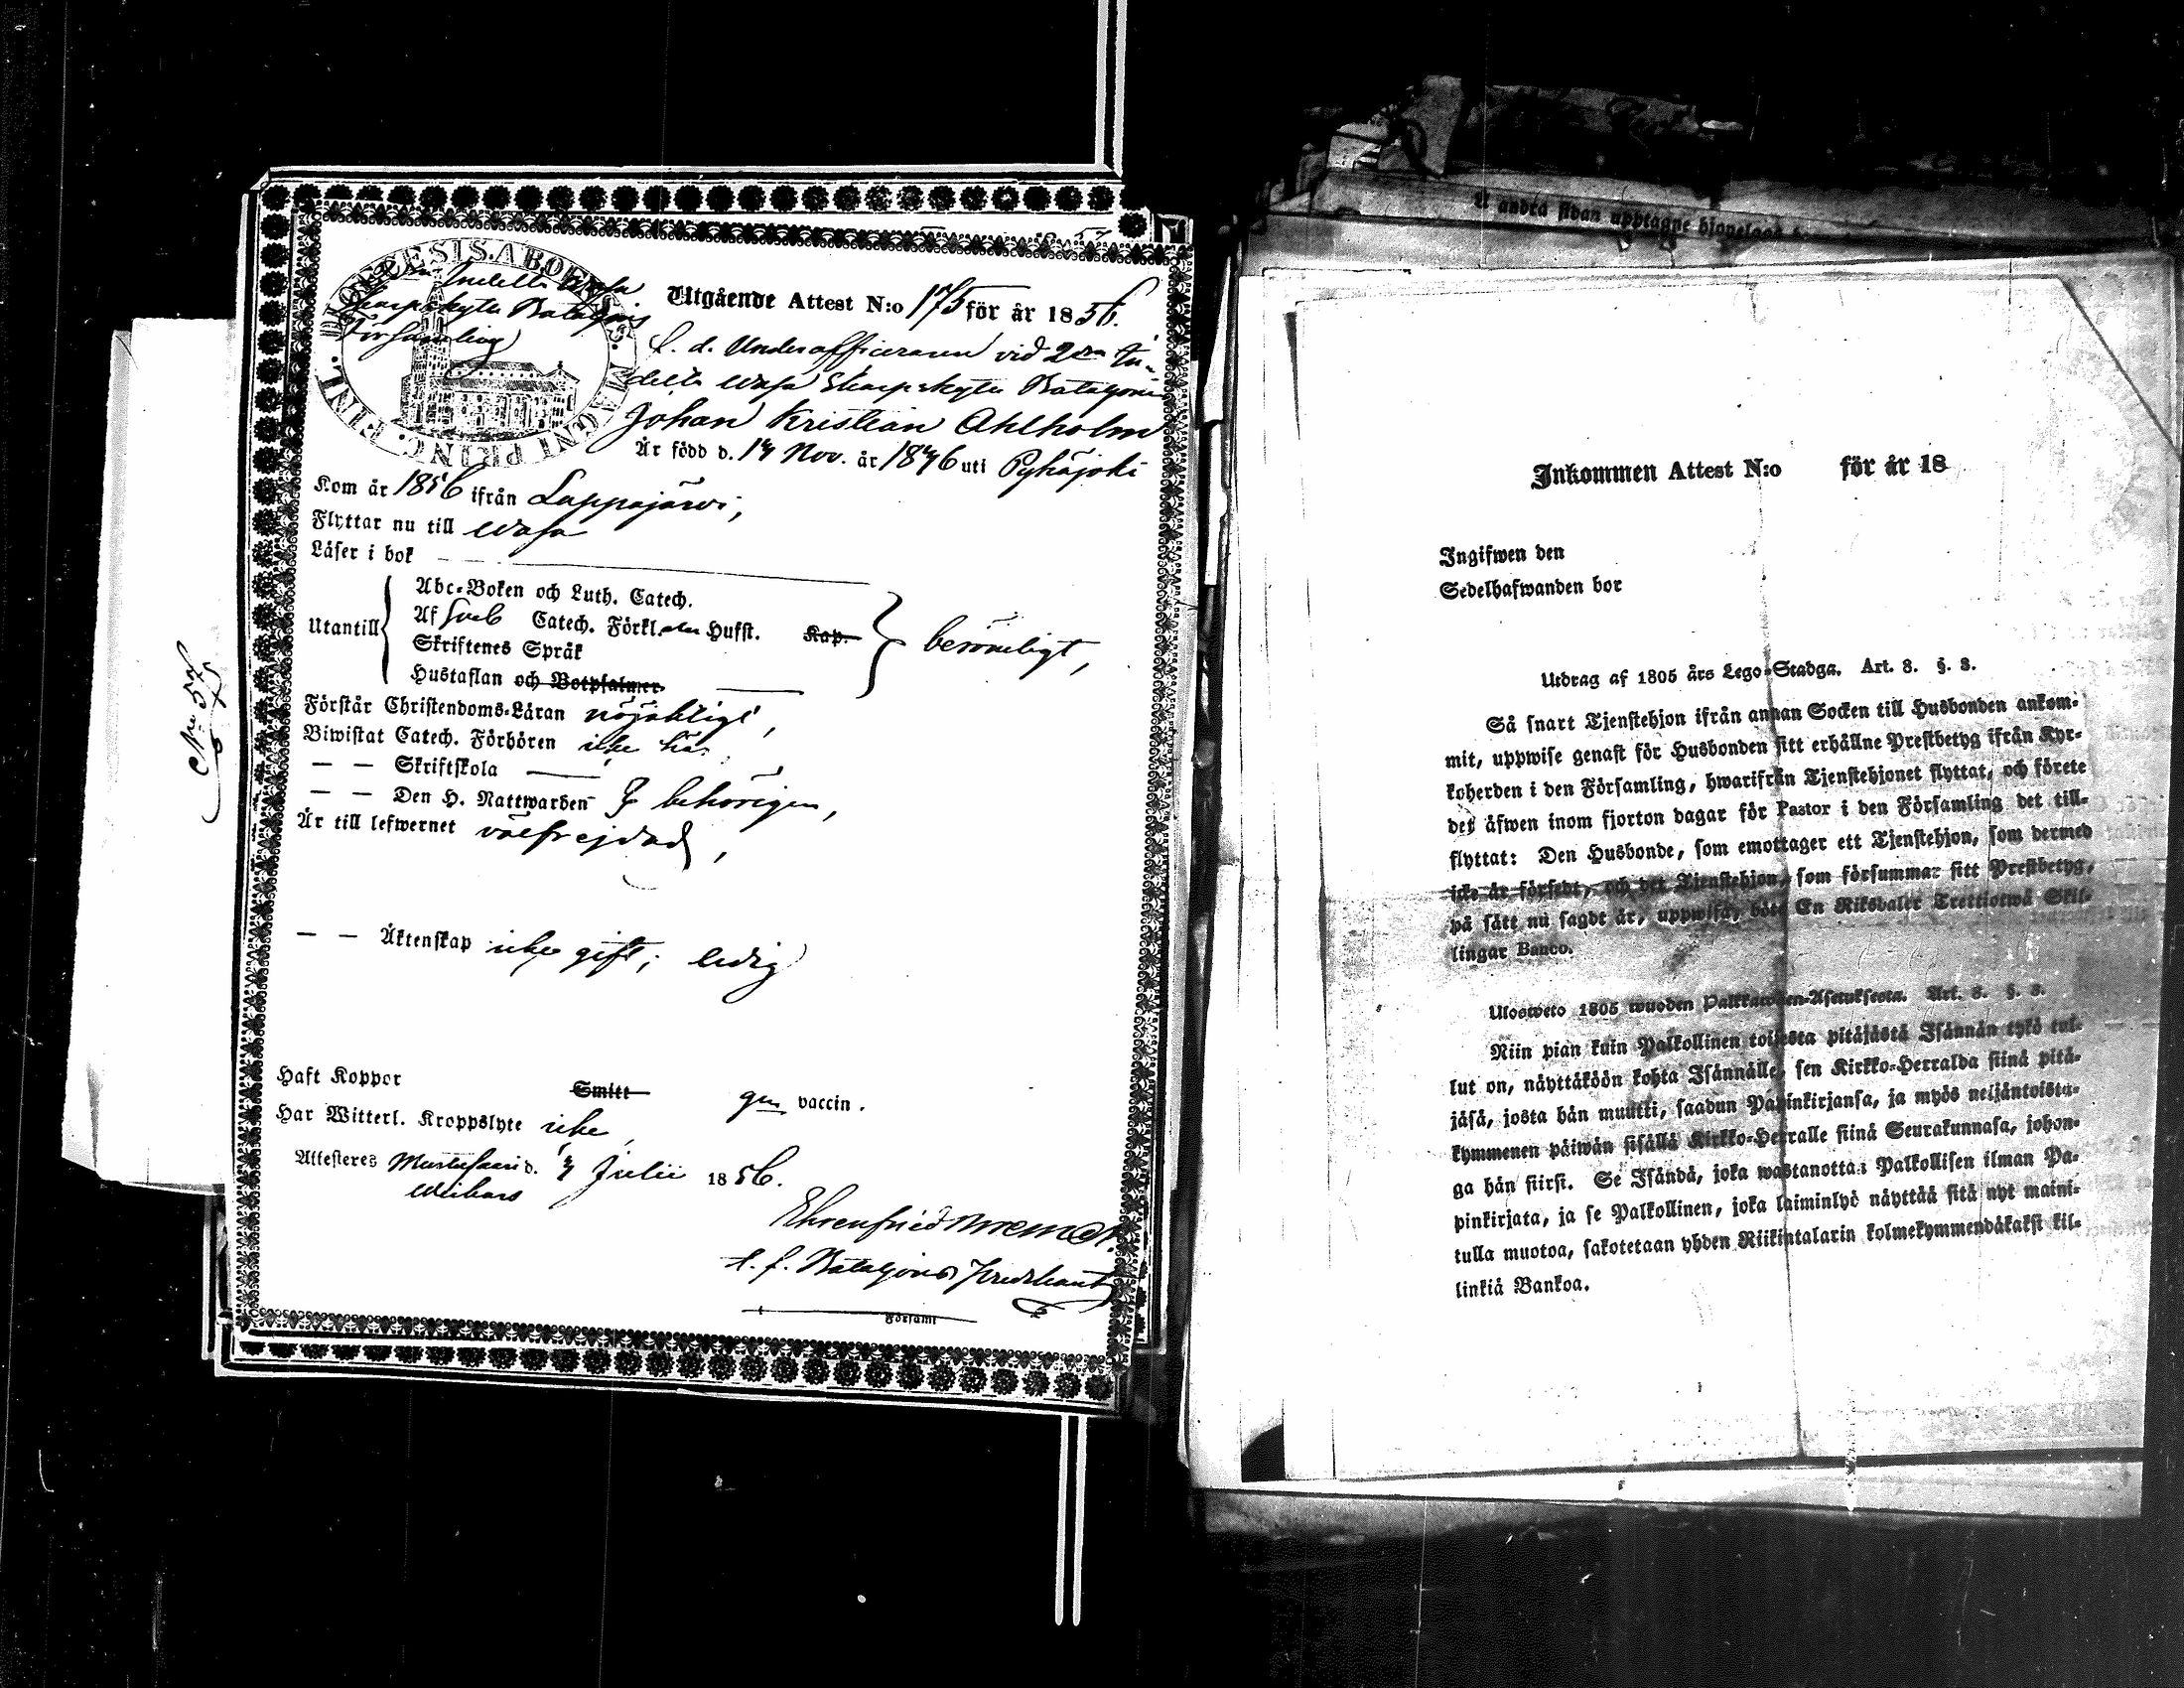 DIOECESIS. ABOENS. MAGNI PRINC. FINL.
Indelta Wasa
Skarpskytte Bataljons
Församling
Utgående Attest N:o 175 för år 1856.
f. d. Underofficeraren vid 2dra In-
delta Wasa Skarpskytte Bataljonen
Johan Kristian Ahlholm
Är född d. 14 Nov. år 1846 uti Pyhäjoki
Kom år 1856 ifrån Lappajärvi,
Flyttar nu till Wasa
Läser i bok
Utantill
Abc-Boken och Luth. Catech.
Af Sveb Catech. Förkl. Hufst. Kap.
Skriftenes Språk
Hustaflan och Botpsalmer
berömligt,
Förstår Christendoms-Läran nöjaktigt,
Biwistat Catech. Förhören icke här
— — Skriftskola
— — Den H. Nattwarden behörigen,
Är till lefwernet välfrejdad,
— — Äktenskap icke gift; ledig
Haft Koppor Smitt gm vaccin.
Har Witterl. Kroppslyte icke
Attesteres Mustasaari d. 4 Julii 1856.
Ehrenfried
t. f. Bataljons Predikant
Församl
No 57
U andra sidan upptagne hjonelag
Inkommen Attest N:o för år 18
Ingifwen den
Sedelhafwanden bor
Utdrag af 1805 års Lego-Stadga. Art. 8. §. 3.
Så snart Tjenstehjon ifrån annan Socken till Husbonden ankom-
mit, uppwise genast för Husbonden sitt erhållne Prestbetyg ifrån Kyr-
koherden i den Församling, hwarifrån Tjenstehjonet flyttat, och förete
det äfwen inom fjorton dagar för Pastor i den Församling det till-
flyttat: Den Husbonde, som emottager ett Tjenstehjon, som dermed
icke är försedt, och det Tjenstehjon, som försummar sitt Prestbetyg,
på sätt nu sagdt är, uppwisa, böte En Riksdaler Trettiotwå Skil-
lingar Banco.
Ulosweto 1805 wuoden Palkkawäen-Asetuksesta. Art. 8. §. 3.
Niin pian kuin Palkollinen toisesta pitäjästä Isännän tykö tul-
lut on, näyttäköön kohta Isännälle, sen Kirkko-Herralda siinä pitä-
jäsä, josta hän muutti, saadun Papinkirjansa, ja myös neljäntoista-
kymmenen päiwän sisällä Kirkko-Herralle siinä Seurakunnasa, johon-
ga hän siirsi. Se Isändä, joka wastanottaa Palkollisen ilman Pa-
pinkirjata, ja se Palkollinen, joka laiminlyö näyttää sitä nyt maini-
tulla muotoa, sakotetaan yhden Riikintalarin kolmekymmendäkaksi kil-
linkiä Bankoa.